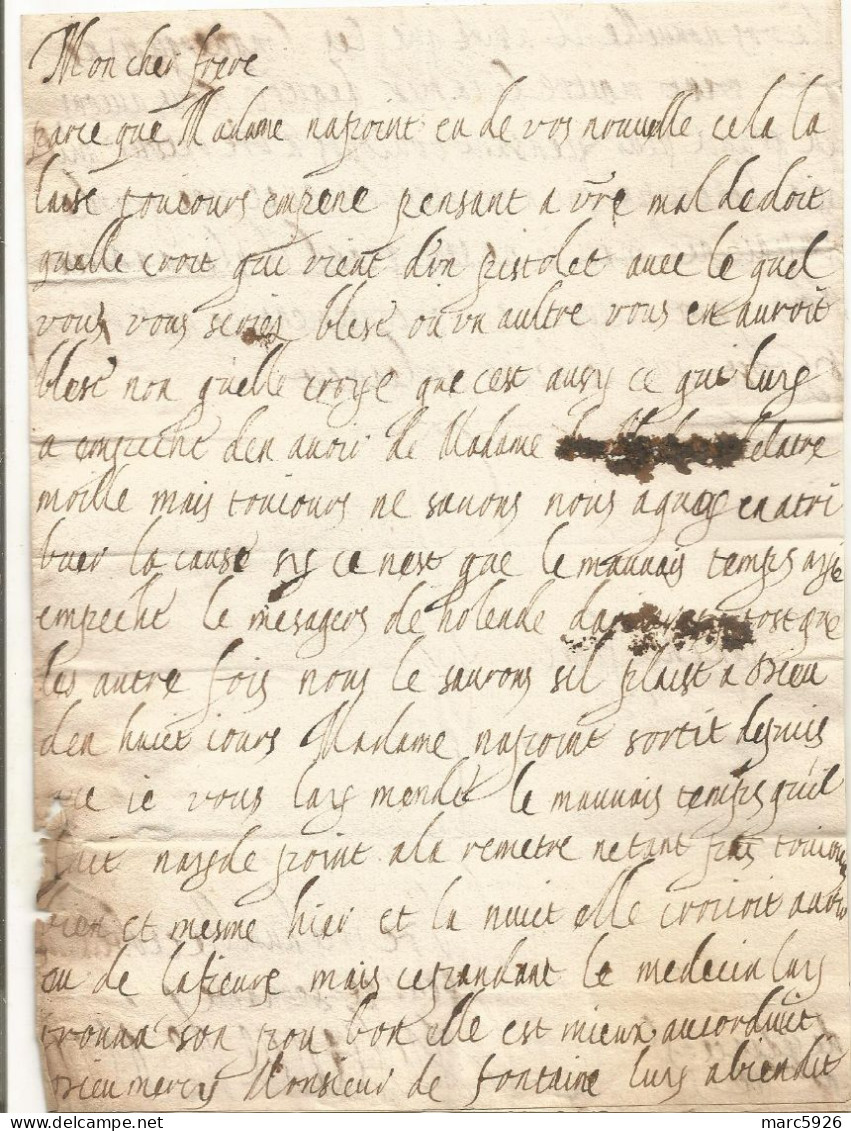 Mon cher frere
parce que Madame na point eu de vos nouvelle cela la
laise toucours empene pensant a vre mal de doit
quelle croit qui vient d'un pistolet avec le quel
vous vous series blesé ou un aultre vous en auroit
blesé non quelle croye que cest ausy ce qui luy
a empeché den avoir de Madame delatre
moille mais toujours ne savons nous a quoy en atri
buer la cause sy ce nest que le mauvais temps aye
empeché le mesagers de holende tost que
les autre fois nous le saurons sil plaist a Dieu
den huict iours Madame na point sortit depuis
que ie vous lay mendé le mauvais temps quil
fait nayde point a la remetre netant pas toujours
bien et mesme hier et la nuict elle croioit avoir
eu de la fieure mais cependant le medecin luy
trouva son pou bon elle est mieux aucorduit
Dieu mercy Monsieur de fontaine luy a bien dit
marc5926